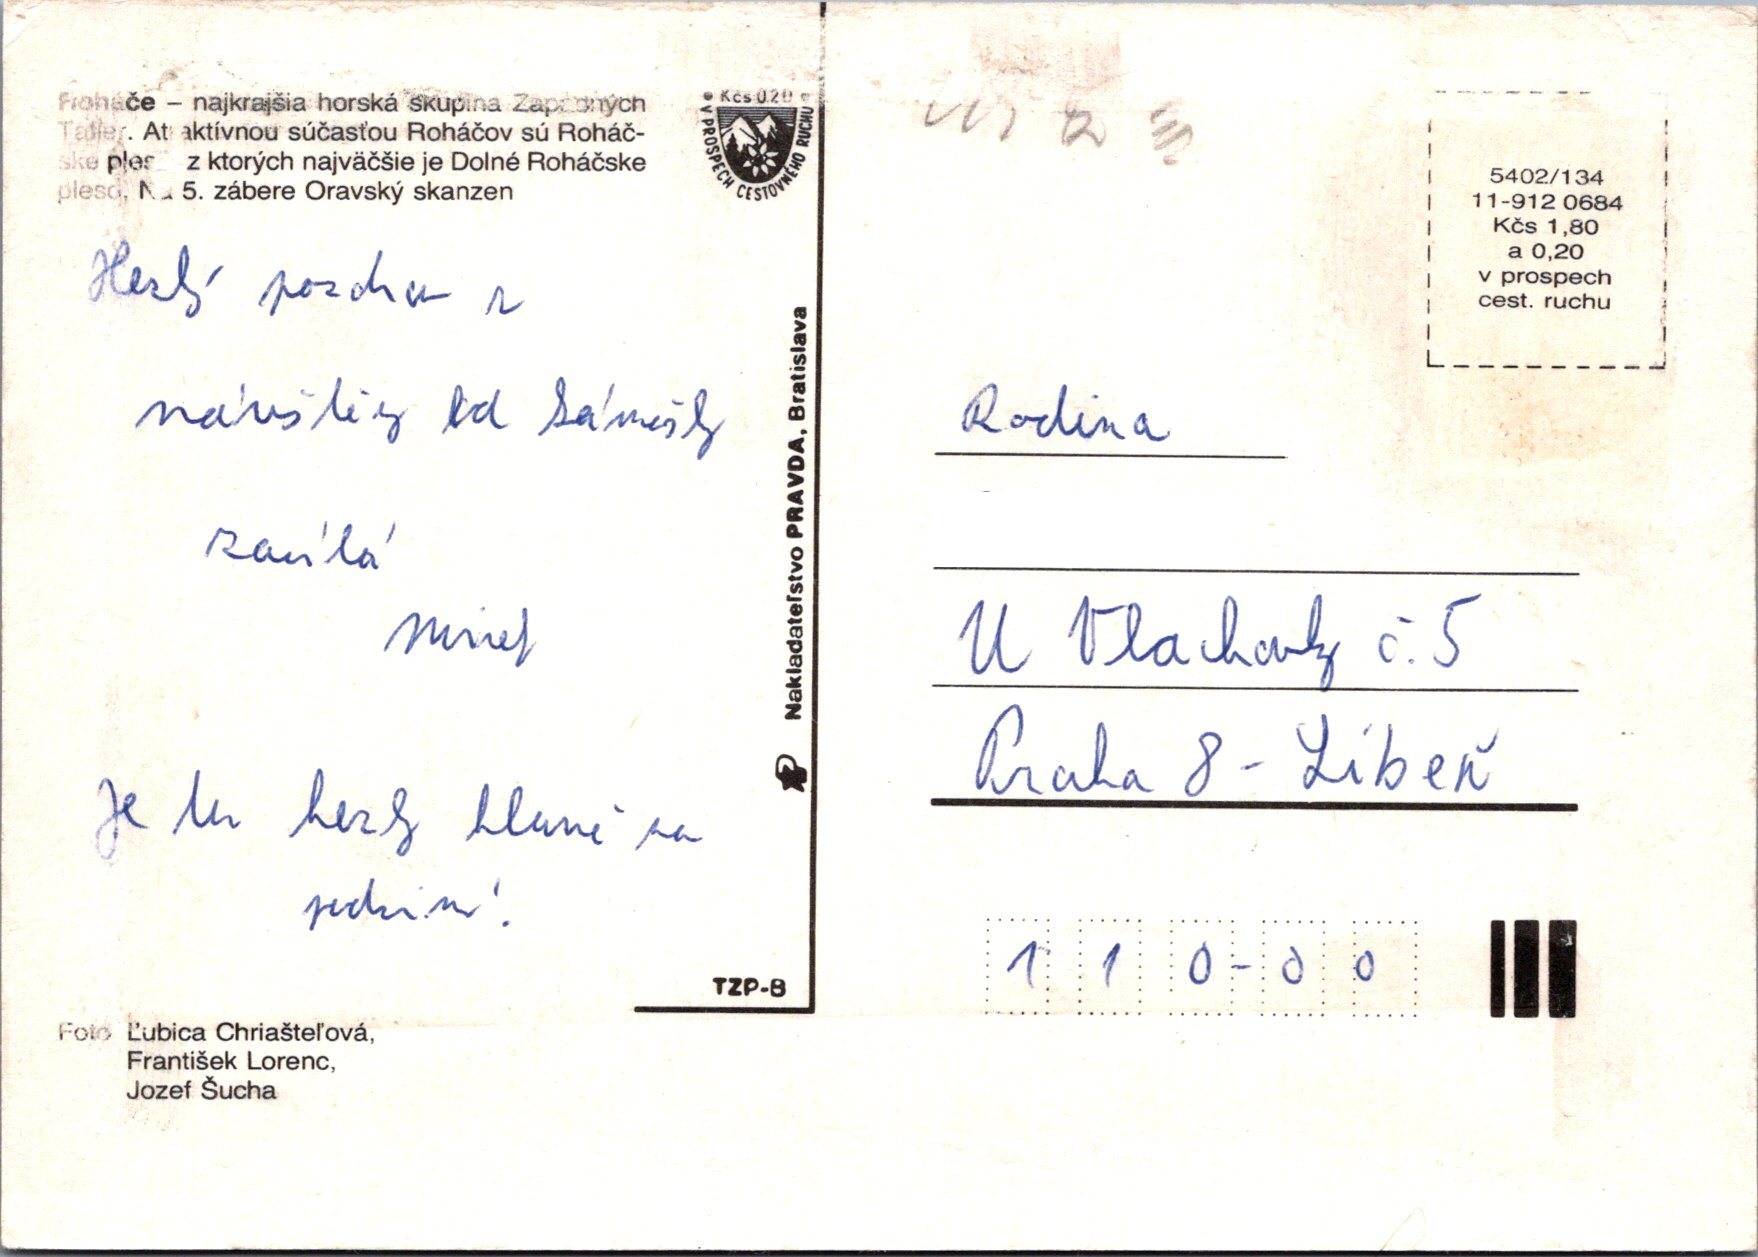 Roháče – najkrajšia horská skupina Západných
Tatier. Atraktívnou súčasťou Roháčov sú Roháč-
ske plesá z ktorých najväčšie je Dolné Roháčske
pleso. Na 5. zábere Oravský skanzen
Kčs 0.20
V PROSPECH CESTOVNÉHO RUCHU
5402/134
11-912 0684
Kčs 1,80
a 0,20
v prospech
cest. ruchu
Hezký pozdrav z
návštěvy od
zasílá
Je tu hezky hlavně na
podzim.
Nakladateľstvo PRAVDA, Bratislava
TZP-B
Foto Ľubica Chriašteľová,
František Lorenc,
Jozef Šucha
Rodina
U Vlachovky č. 5
Praha 8 - Libeň
110-00